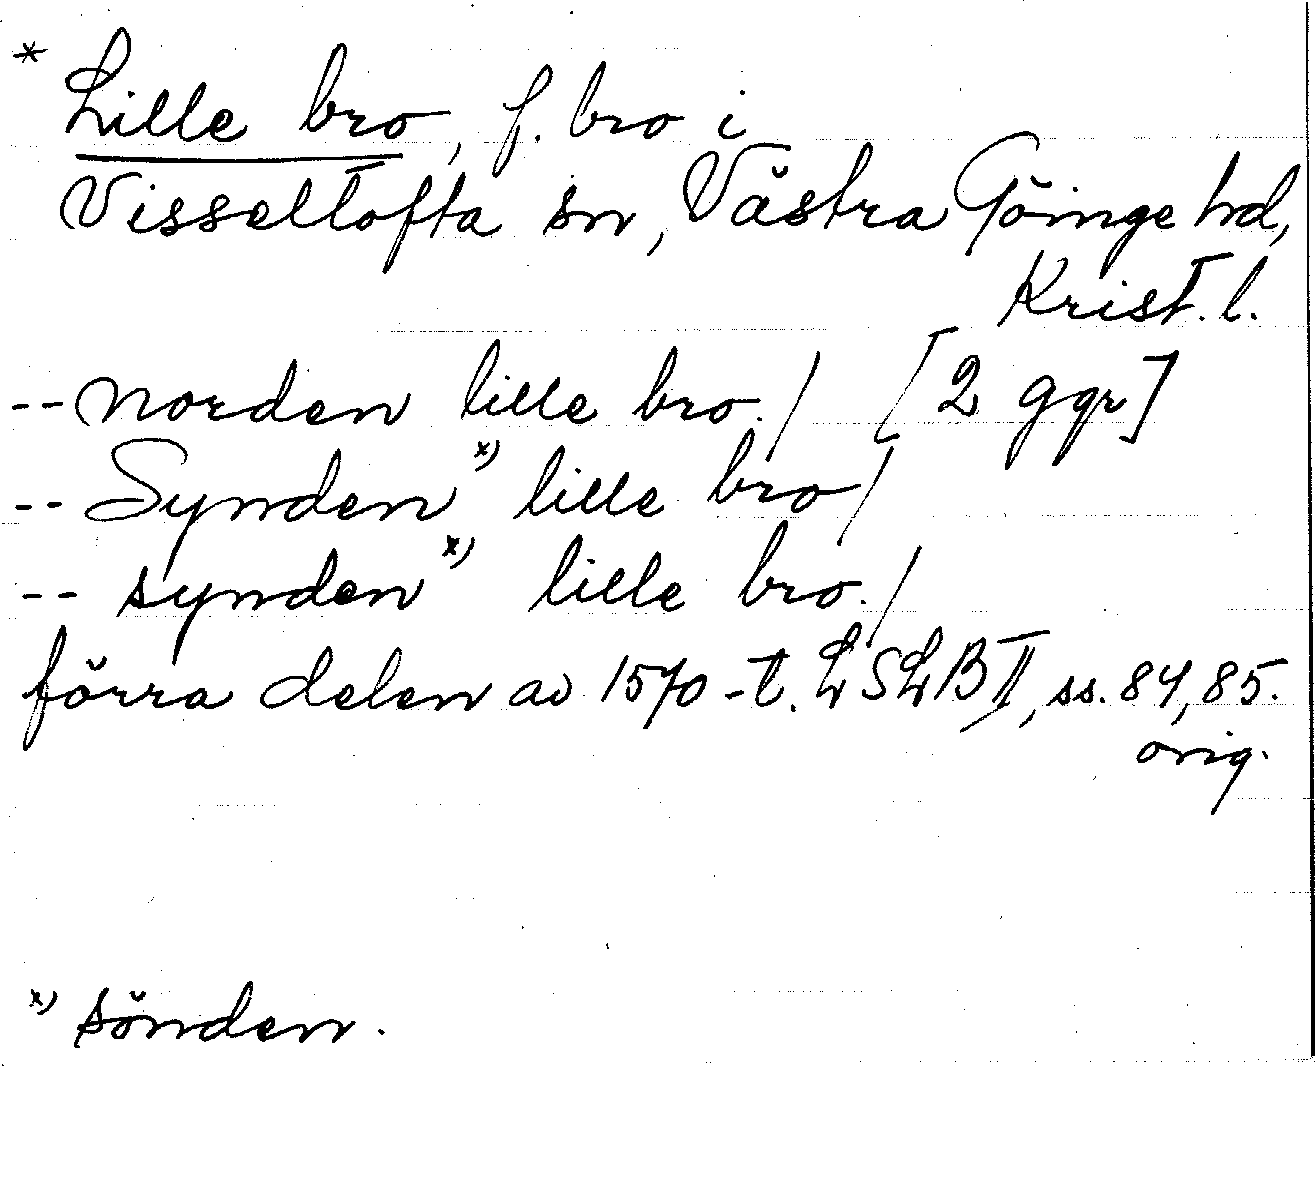 * Lille bro, f. bro i
Visseltofta sn, Västra Göinge hd,
Krist. l.
-- norden lille bro./ [2 ggr]
-- Synden x) lille bro/
-- synden x) lille bro./
förra delen av 1570-t. LSLB II, ss. 84, 85.
orig.
x) sönden.